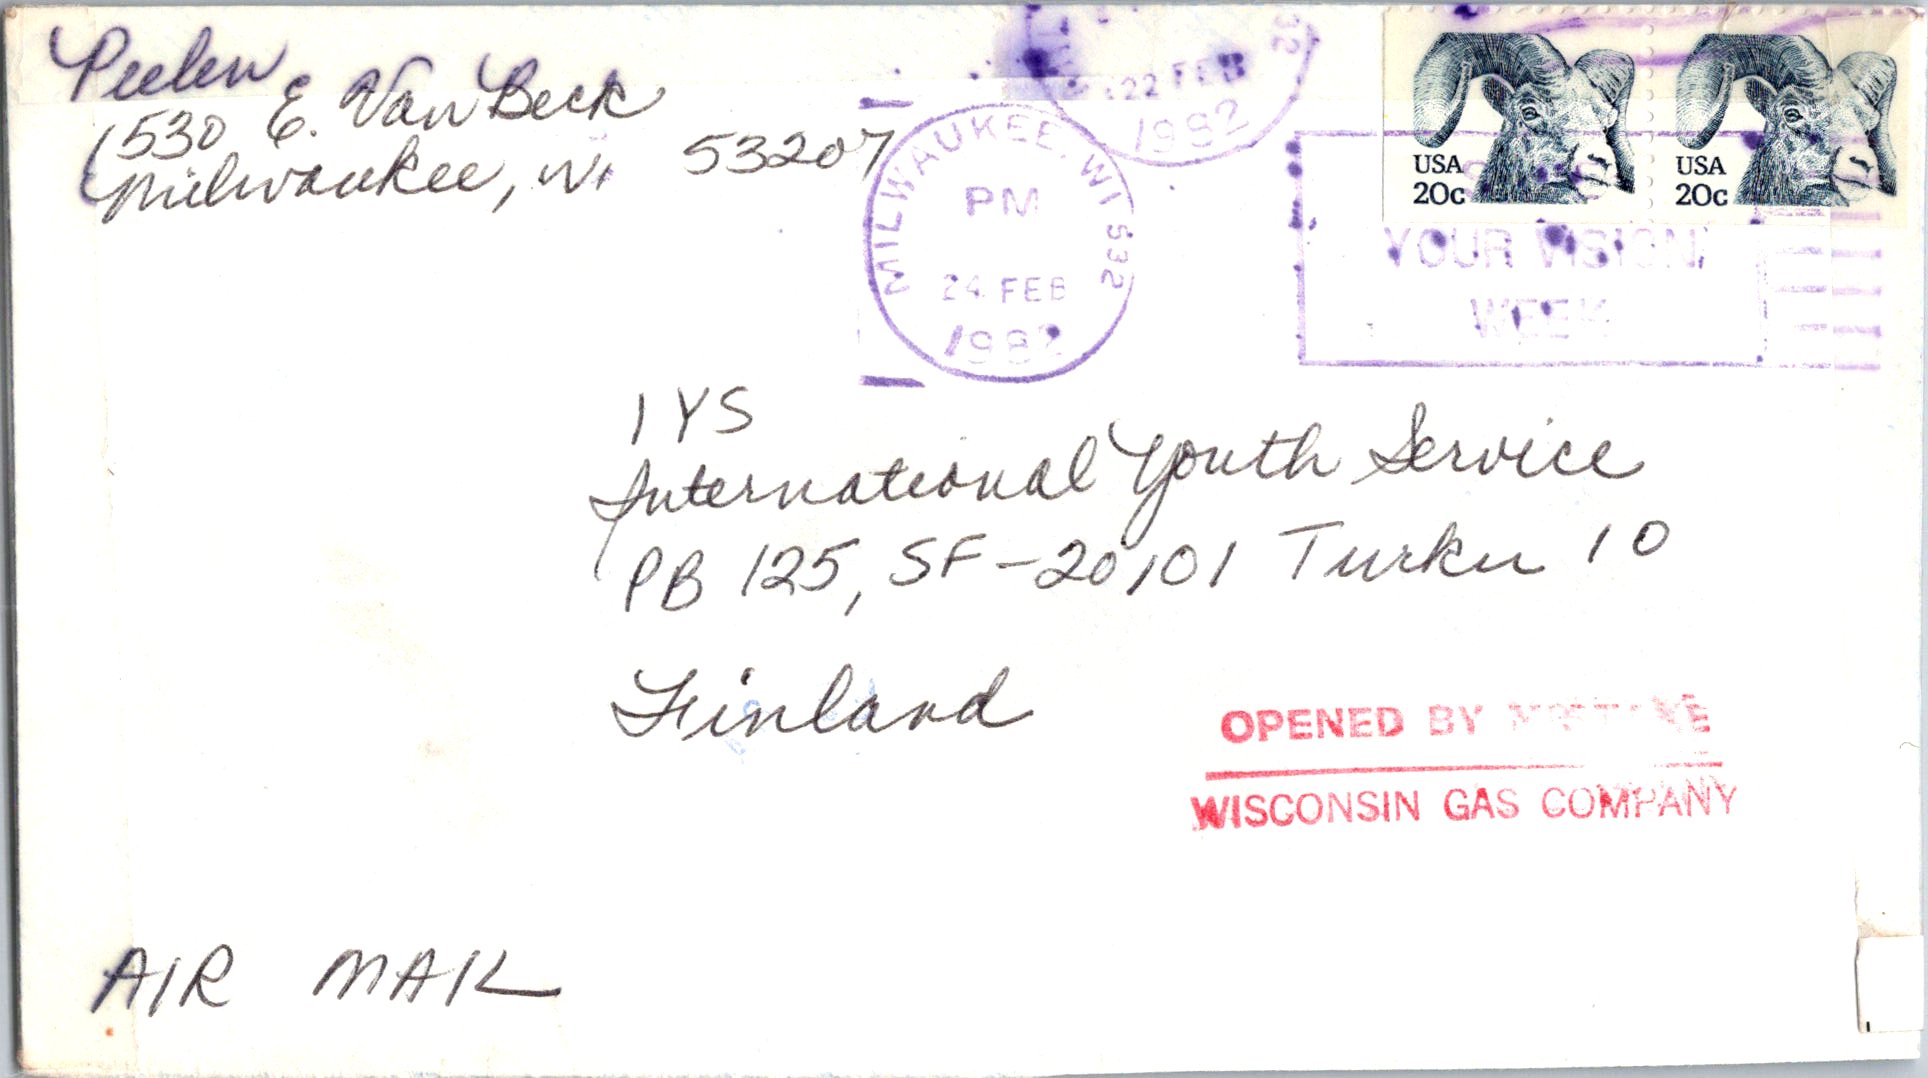 Peelen
1530 E. Van Beck
Milwaukee, Wi 53207
22 FEB
1982
32
MILWAUKEE, WI 532
PM
24 FEB
1982
USA
20c
USA
20c
YOUR VISION
WEEK
IYS
International Youth Service
PB 125, SF-20101 Turku 10
Finland
OPENED BY MISTAKE
WISCONSIN GAS COMPANY
AIR MAIL